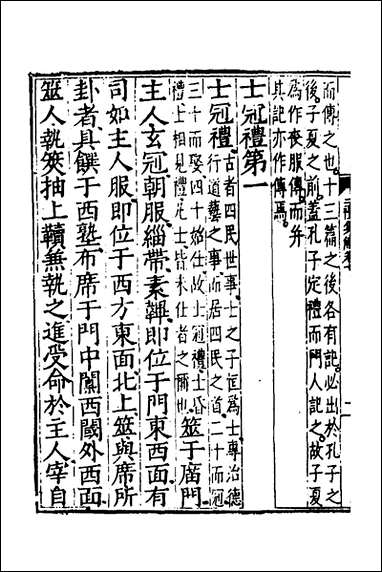 而傳之也。十三篇之後各有記。必出於孔子之
後。子夏之前。蓋孔子定禮而門人記之。故子夏
為作喪服傳。而并
其記亦作傳焉。
士冠禮第一
士冠禮。古者四民世事。士之子恒為士專治德
行道藝之事。而居四民之首。二十而冠。
三十而娶。四十始仕。故上冠禮士昏
禮士相見禮。凡士皆未仕者之爾也。筮于廟門。
主人玄冠朝服。緇帶素韠。即位于門東西面。有
司如主人服。即位于西方。東面北上。筮與席所
卦者。具饌于西塾。布席于門中。闑西閾外西面。
筮人執筴。抽上韇。兼執之。進受命於主人。宰自
二禮集解卷